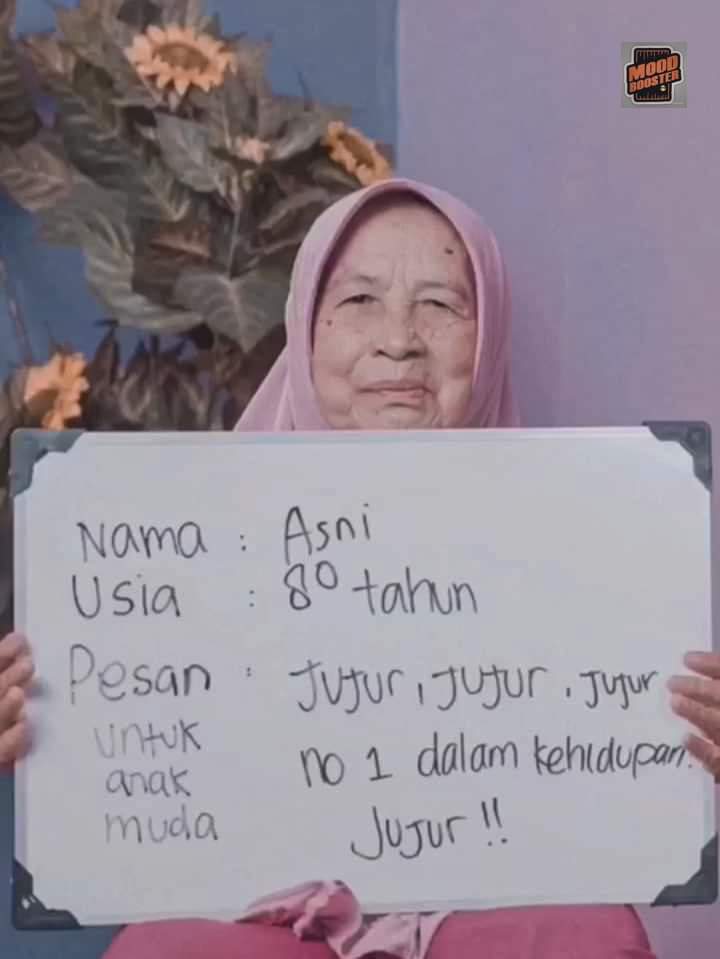 MOOD
BOOSTER
Nama : Asni
Usia : 80 tahun
Pesan : Jujur, Jujur, Jujur
untuk
anak
muda
no 1 dalam kehidupan.
Jujur !!